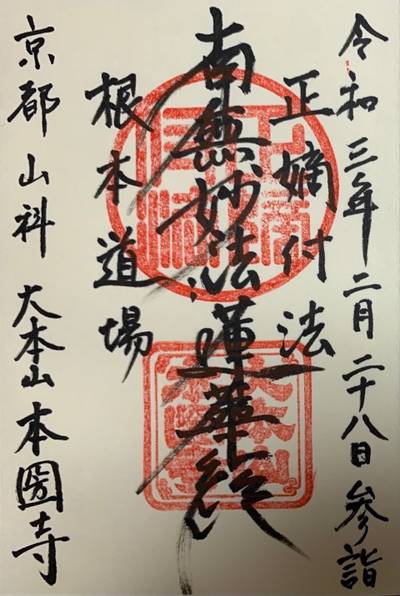 令和三年二月二十八日参詣
正嫡付法
南無妙法蓮華経
根本道場
京都山科大本山本圀寺